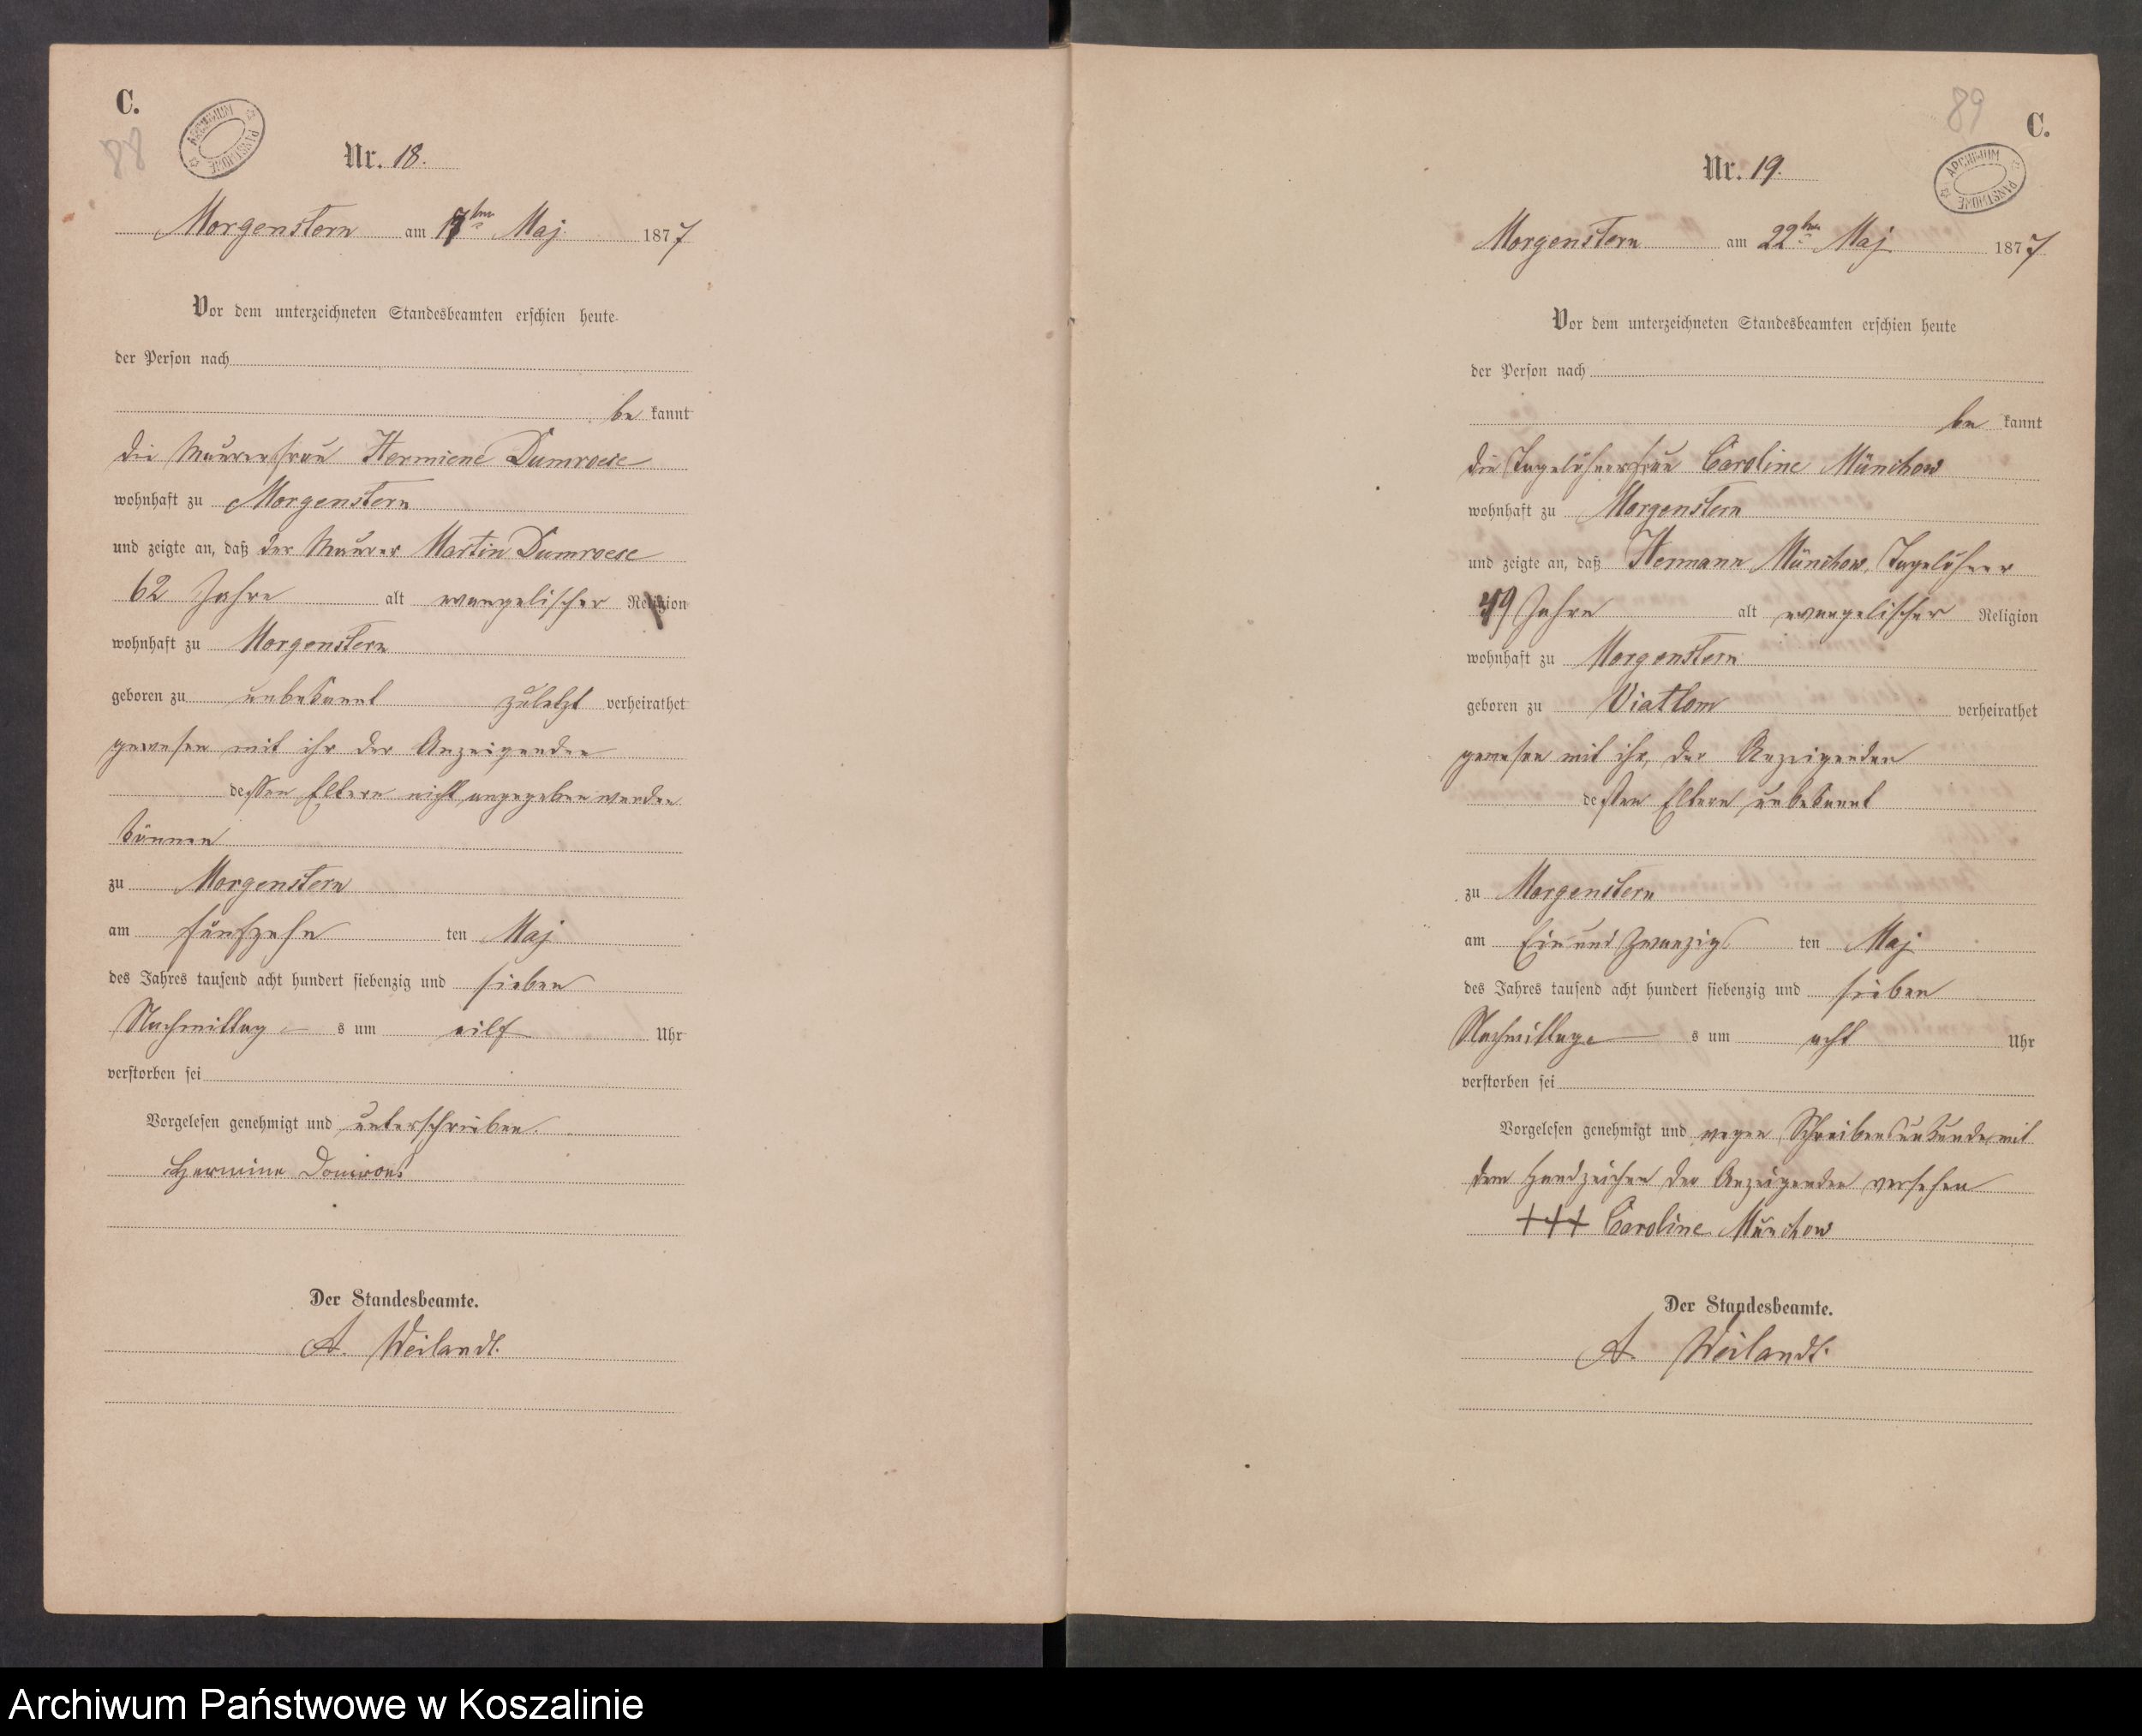 C.
88
ARCHIWUM PAŃSTWOWE
Nr. 18.
Morgenstern am 17ten Maj 1877
Vor dem unterzeichneten Standesbeamten erschien heute
der Person nach
be kannt
die Maurerfrau Hermiene Dumroese
wohnhaft zu Morgenstern
und zeigte an, daß der Maurer Martin Dumroese
62 Jahre alt evangelischer Religion
wohnhaft zu Morgenstern
geboren zu unbekannt zuletzt verheirathet
gewesen mit ihr der Anzeigenden
dessen Eltern nicht angegeben werden
können
zu Morgenstern
am fünfzehn ten Maj
des Jahres tausend acht hundert siebenzig und sieben
Nachmittag s um eilf Uhr
verstorben sei
Vorgelesen genehmigt und unterschrieben.
Hermine
Der Standesbeamte.
A. Weilandt.
89
C.
ARCHIWUM PAŃSTWOWE
Nr. 19.
Morgenstern am 22ten Maj 1877
Vor dem unterzeichneten Standesbeamten erschien heute
der Person nach
be kannt
die Tagelöhnerfrau Caroline Münchow
wohnhaft zu Morgenstern
und zeigte an, daß Hermann Münchow, Tagelöhner
49 Jahre alt evangelischer Religion
wohnhaft zu Morgenstern
geboren zu Viatlom verheirathet
gewesen mit ihr, der Anzeigenden
dessen Eltern unbekannt
zu Morgenstern
am Ein und Zwanzigs ten Maj
des Jahres tausend acht hundert siebenzig und sieben
Nachmittage s um acht Uhr
verstorben sei
Vorgelesen genehmigt und wegen Schreibensunkunde mit
dem Handzeichen der Anzeigenden versehen
+++ Caroline Münchow
Der Standesbeamte.
A. Weilandt.
Archiwum Państwowe w Koszalinie